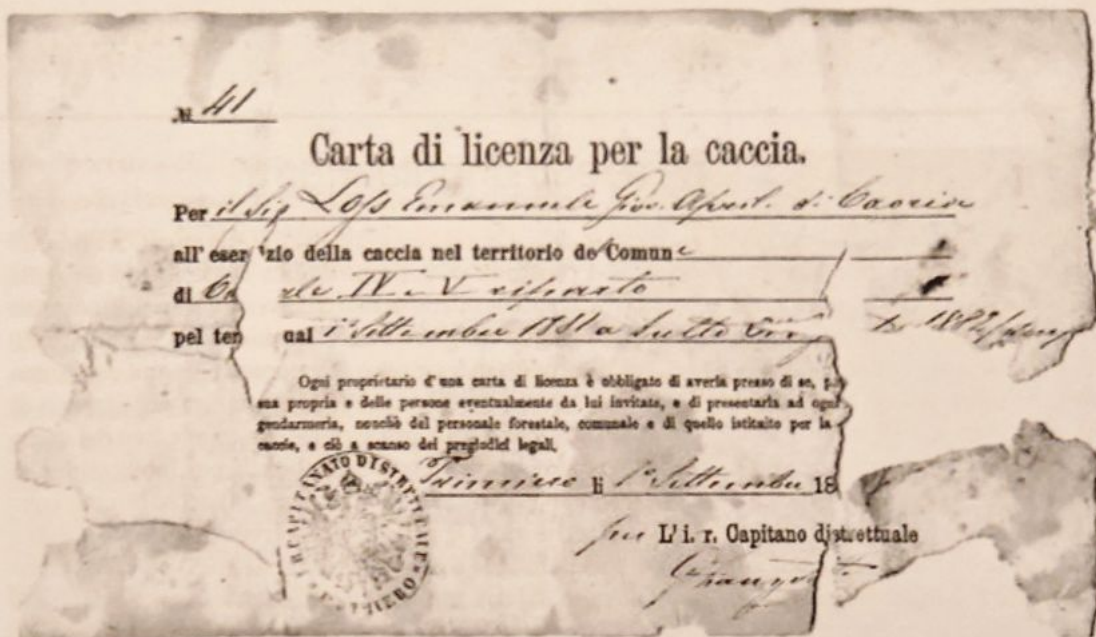 № 41
Carta di licenza per la caccia.
Per il Sig Loss Emanuele Giov. di Caoria
all' eser izio della caccia nel territorio de Comune
di le IV e V riparto
pel ter dal 1° Settembre 1881 a tutto 1882
Ogni proprietario d'una carta di licenza è obbligato di averla presso di se, p
sua propria e delle persone eventualmente da lui invitate, e di presentarla ad ogni
gendarmeria, nonchè del personale forestale, comunale e di quello istituito per la
caccie, e ciò a scanso dei pregiudizi legali.
Primiero li 1° Settembre 18
per L' i. r. Capitano distrettuale
I. R. CAPITANATO DISTRETTUALE IERO